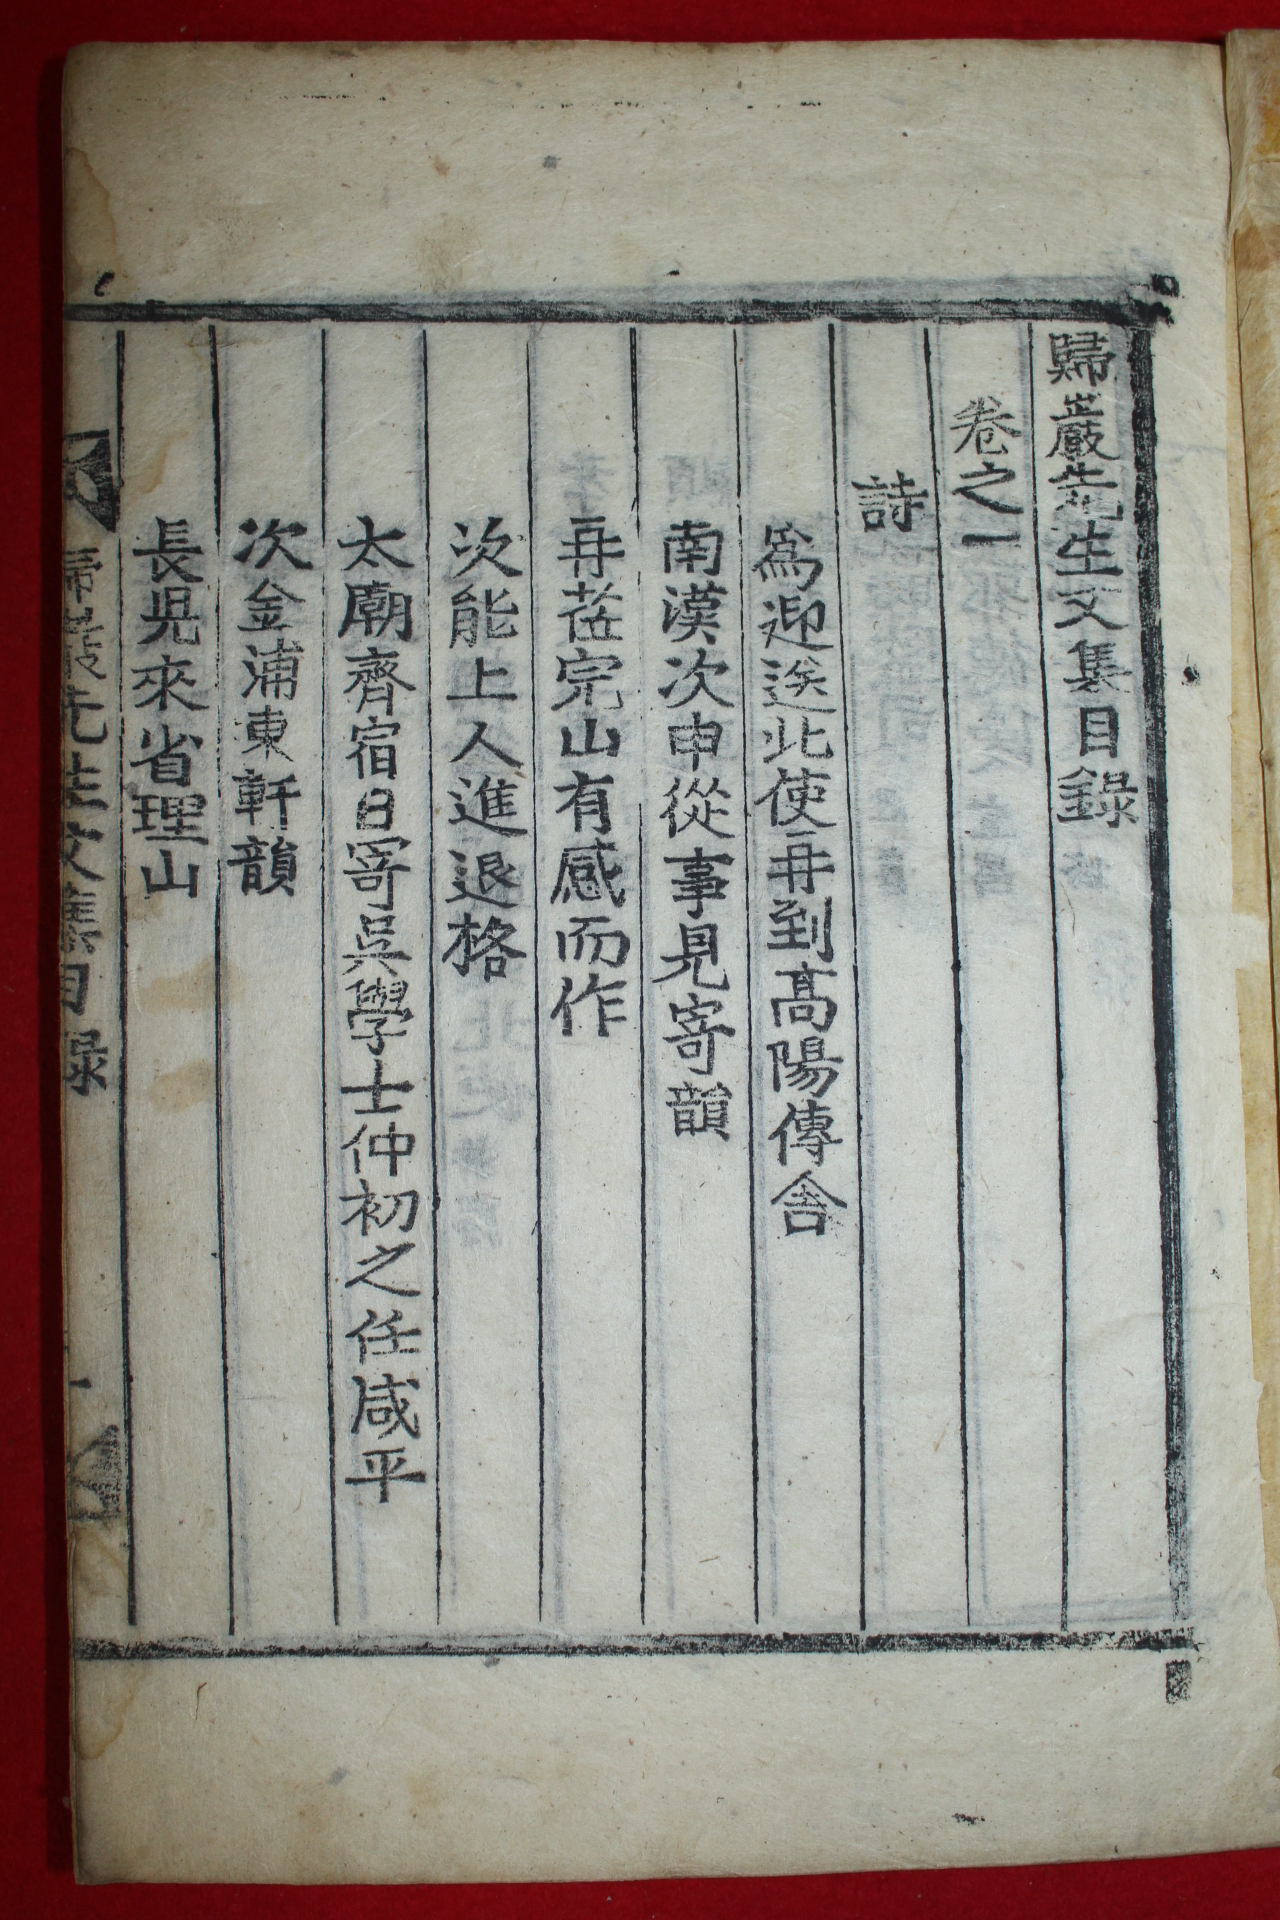 歸巖先生文集目錄
卷之一
詩
爲迎送北使再到高陽傳舍
南漢次申從事見寄韻
再莅完山有感而作
次能上人進退格
太廟齊宿日寄吳學士仲初之任咸平
次金浦東軒韻
長兒來省理山
歸巖先生文集目錄 一